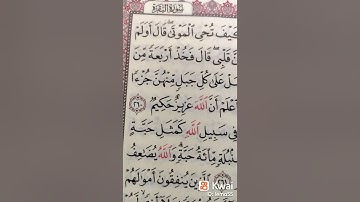 سورة البقرة
كَيْفَ تُحْيِ الْمَوْتَىٰ قَالَ أَوَلَمْ
قَلْبِي قَالَ فَخُذْ أَرْبَعَةً مِّنَ
عَلَىٰ كُلِّ جَبَلٍ مِّنْهُنَّ جُزْءًا
أَنَّ اللَّهَ عَزِيزٌ حَكِيمٌ ٢٦٠
فِي سَبِيلِ اللَّهِ كَمَثَلِ حَبَّةٍ
سُنْبُلَةٍ مِّائَةُ حَبَّةٍ وَاللَّهُ يُضَاعِفُ
يُنْفِقُونَ أَمْوَالَهُمْ
Kwai